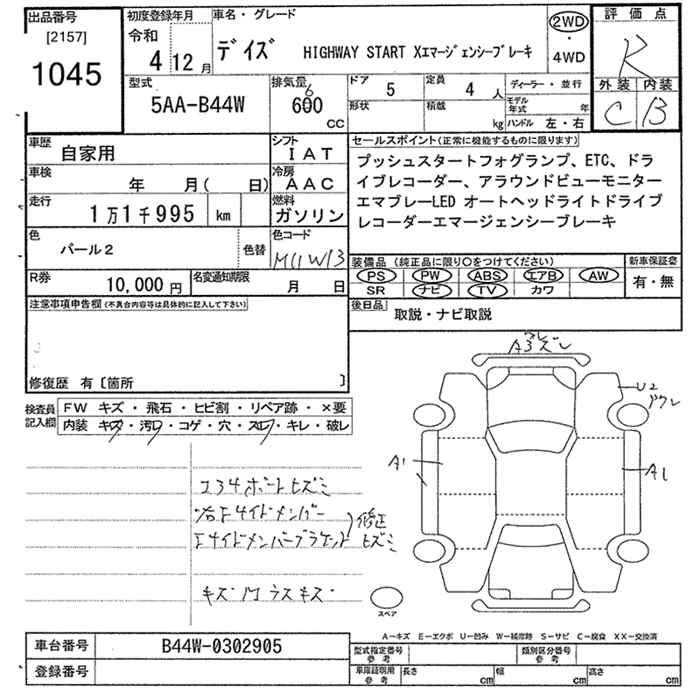 出品番号
[2157]
1045
初度登録年月
令和
4年12月
車名・グレード
デイズ
HIGHWAY START Xエマージェンシーブレーキ
2WD
・
4WD
評価点
R
外装 内装
C B
型式
5AA-B44W
排気量
6
600
CC
ドア
5
定員
4人
形状
積載
kg
ディーラー・並行
モデル年式 年
ハンドル 左・右
車歴
自家用
シフト
IAT
車検
年 月( 日)
冷房
AAC
走行
1万1千995 km
燃料
ガソリン
色
パール2
色替
色コード
R券
10,000円
名変通知期限
月 日
セールスポイント(正常に機能するものに限ります)
プッシュスタートフォグランプ、ETC、ドラ
イブレコーダー、アラウンドビューモニター
エマブレーLED オートヘッドライトドライブ
レコーダーエマージェンシーブレーキ
装備品(純正品に限り○をつけてください)
PS PW ABS エアB AW
SR ナビ TV カワ
新車保証書
有・無
後日品
取説・ナビ取説
注意事項申告欄(不具合内容等は具体的に記入して下さい)
修復歴 有〔箇所 〕
検査員
記入欄
FW キズ・飛石・ヒビ割・リペア跡・×要
内装 キズ・汚レ・コゲ・穴・スレ・キレ・破レ
A3 ズレ
U2
A1
A1
コヨ4ボートヒズミ
修正
ヒズミ
スペア
A-キズ E-エクボ U-凹み W-補修跡 S-サビ C-腐食 XX-交換済
車台番号
B44W-0302905
登録番号
型式指定番号
参考
類別区分番号
参考
車庫証明用
参考
長さ cm
幅 cm
高さ cm